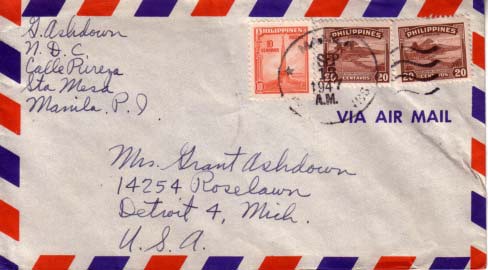 G. Ashdown
N. D. C.
Calle Pureza
Sta Mesa
Manila, P. I.
PHILIPPINES
10
CENTAVOS
PHILIPPINES
20 CENTAVOS 20
PHILIPPINES
20 CENTAVOS 20
SEP
1947
A.M.
VIA AIR MAIL
Mrs. Grant Ashdown
14254 Roselawn
Detroit 4, Mich.
U. S. A.